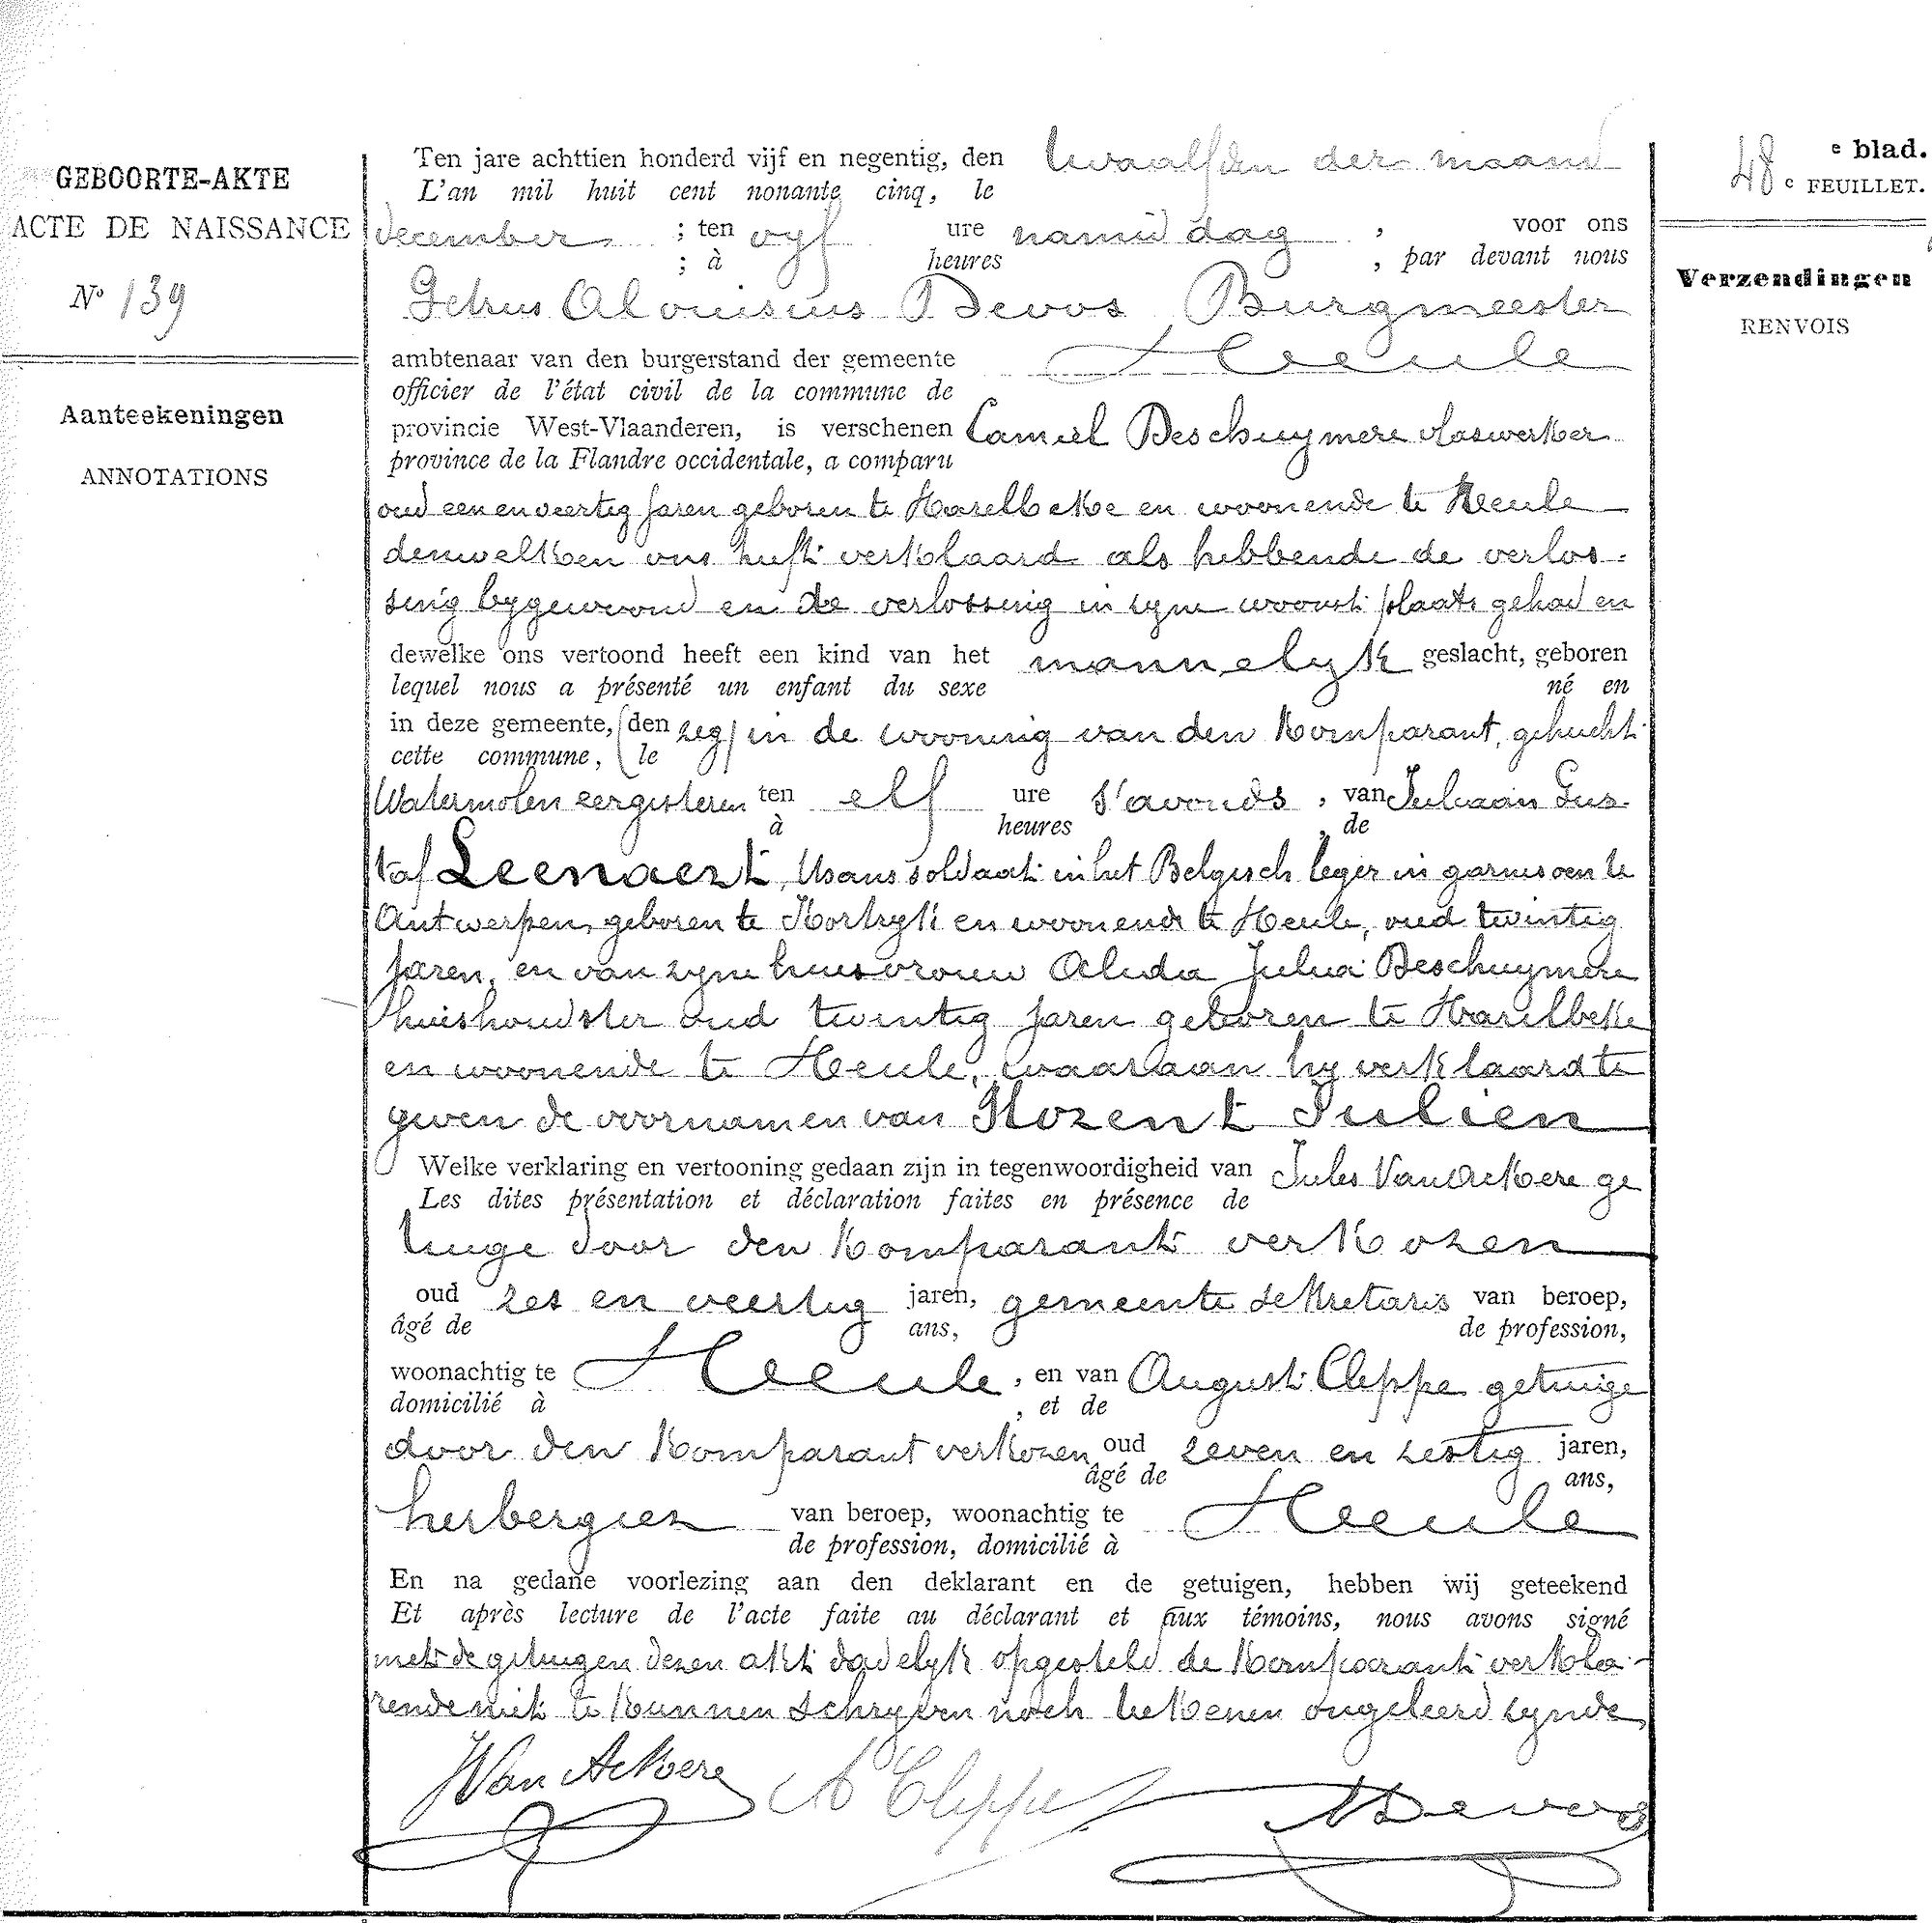 GEBOORTE-AKTE
ACTE DE NAISSANCE
No 139
Aanteekeningen
ANNOTATIONS
Ten jare achttien honderd vijf en negentig, den twaalfden der maand
L'an mil huit cent nonante cinq, le
december ; ten vyf ure namiddag , voor ons
; à heures , par devant nous
Petrus Alouisius Devos Burgmeester
ambtenaar van den burgerstand der gemeente Heule
officier de l'état civil de la commune de
provincie West-Vlaanderen, is verschenen Camiel Deschuymere vlaswerker
province de la Flandre occidentale, a comparu
oud een en veertig jaren geboren te Harelbeke en woonende te Heule
denwelken ons heeft verklaard als hebbende de verlos-
sing bygewoond en de verlossing in zyne woonst plaats gehad en
dewelke ons vertoond heeft een kind van het mannelyk geslacht, geboren
lequel nous a présenté un enfant du sexe né en
in deze gemeente, (den zeg) in de wooning van den Komparant, gehucht
cette commune, (le
Watermolen eergisteren ten elf ure s'avonds , van Juliaan Gus-
à heures , de
taf Leenaert, soldaat in het Belgisch leger in garnisoen te
Antwerpen, geboren te Kortryk en woonende te Heule, oud twintig
jaren, en van zyne huisvrouw Alida Julia Deschuymere
huishoudster oud twintig jaren geboren te Harelbeke
en woonende te Heule, waaraan hy verklaard te
geven de voornamen van Florent Julien
Welke verklaring en vertooning gedaan zijn in tegenwoordigheid van Jules VanAckere ge
Les dites présentation et déclaration faites en présence de
tuige door den Komparant verkozen
oud zes en veertig jaren, gemeente sekretaris van beroep,
âgé de ans, de profession,
woonachtig te Heule , en van August Cleppe getuige
domicilié à , et de
door den Komparant verkozen oud zeven en zestig jaren,
âgé de ans,
herbergier van beroep, woonachtig te Heule
de profession, domicilié à
En na gedane voorlezing aan den deklarant en de getuigen, hebben wij geteekend
Et après lecture de l'acte faite au déclarant et aux témoins, nous avons signé
met de getuigen dezen akt dadelyk opgesteld de Komparant verkla-
rende niet te kunnen schryven noch teekenen ongeleerd zynde
JVan Ackere A Cleppe ADevos
48 e blad.
e FEUILLET.
Verzendingen
RENVOIS